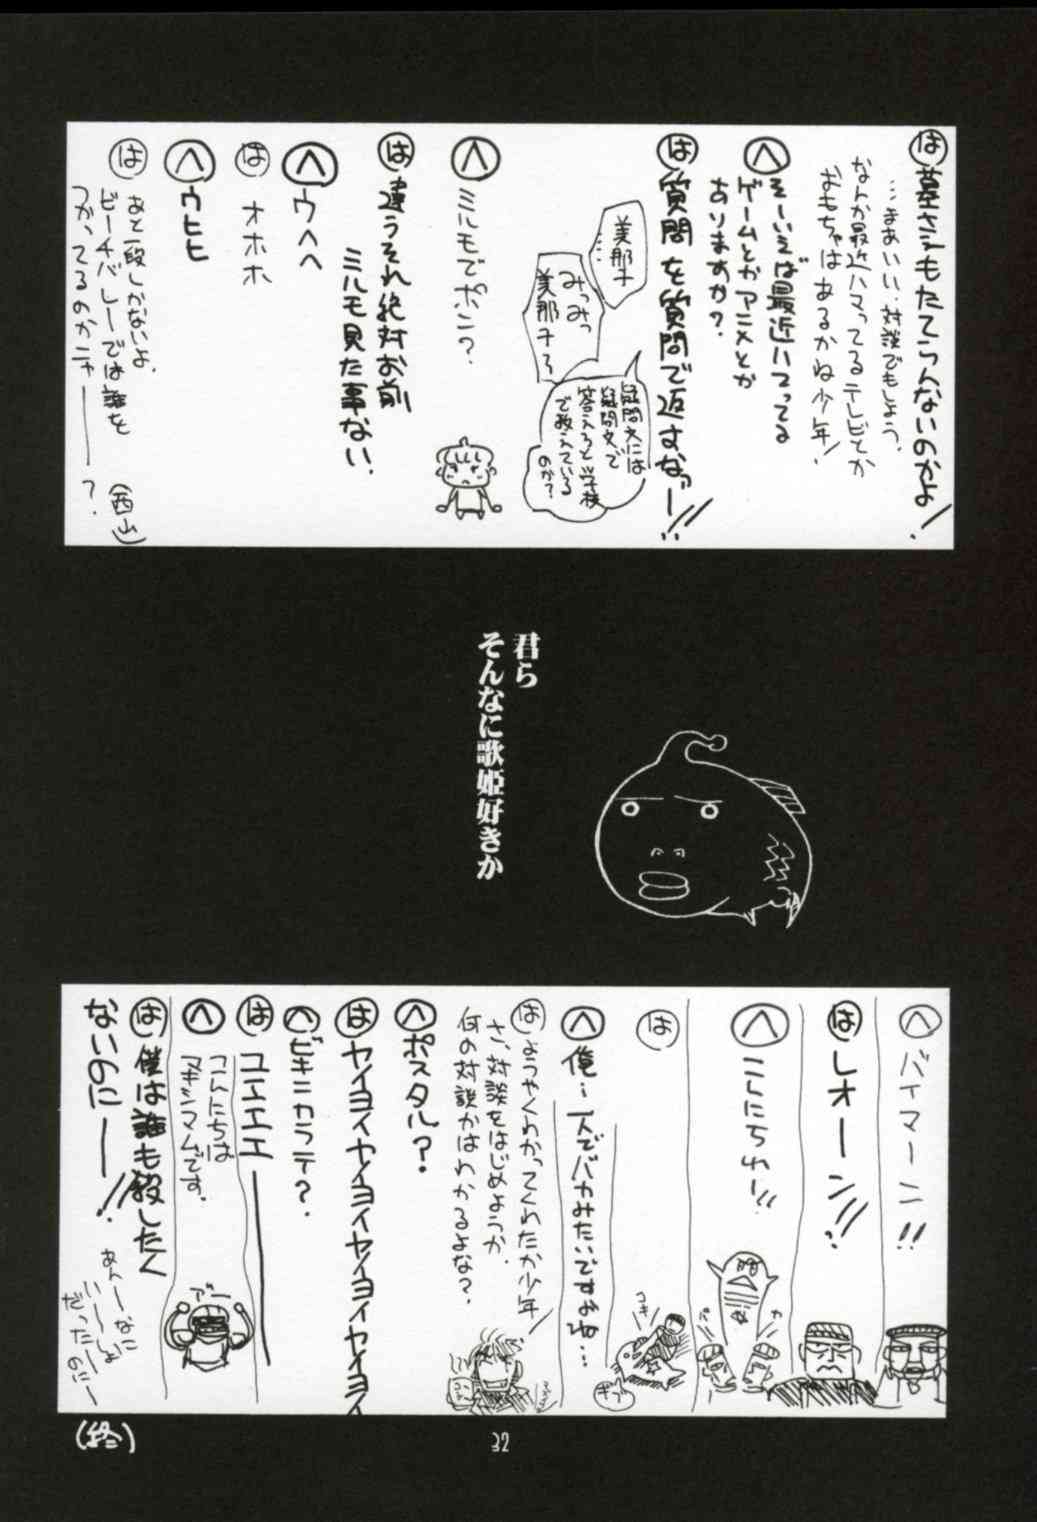 は 墓さえもたてらんないのかよ!
…まあいい、対談でもしよう。
なんか最近ハマってるテレビとか
おもちゃはあるかね少年!
へ そーいえば最近ハマってる
ゲームとかアニメとか
ありますか?
は 質問を質問で返すなーッ!!
美那子……
みつみつ
美那子ろ
疑問文には
疑問文で
答えろと学校
で教えている
のか?
へ ミルモでポン?
は 違うそれ絶対お前
ミルモ見た事ない。
へ ウヘヘ
は オホホ
へ ウヒヒ
は あと一段しかないよ。
ビーチバレーでは誰を
つかってるのかニャーーー?
(西山)
君ら
そんなに歌姫好きか
へ バイマーン!!
は レオーン!!!
へ こんにちわー!!
は
コキ
ギュ
へ 俺…一人でバカみたいですよね…
は ようやくわかってくれたか少年!
さ、対談をはじめようか。
何の対談かはわかるよな?
へ ポスタル?
は ヤイヨイヤイヨイヤイヨイヤイヨイ
へ ビキニカラテ?
は ユエエエーーー
へ こんにちは
マキシマムです。
は 僕は誰も殺したく
ないのにーー!!
あんーなに
いーーしょ
だったーのにー
(終)
32